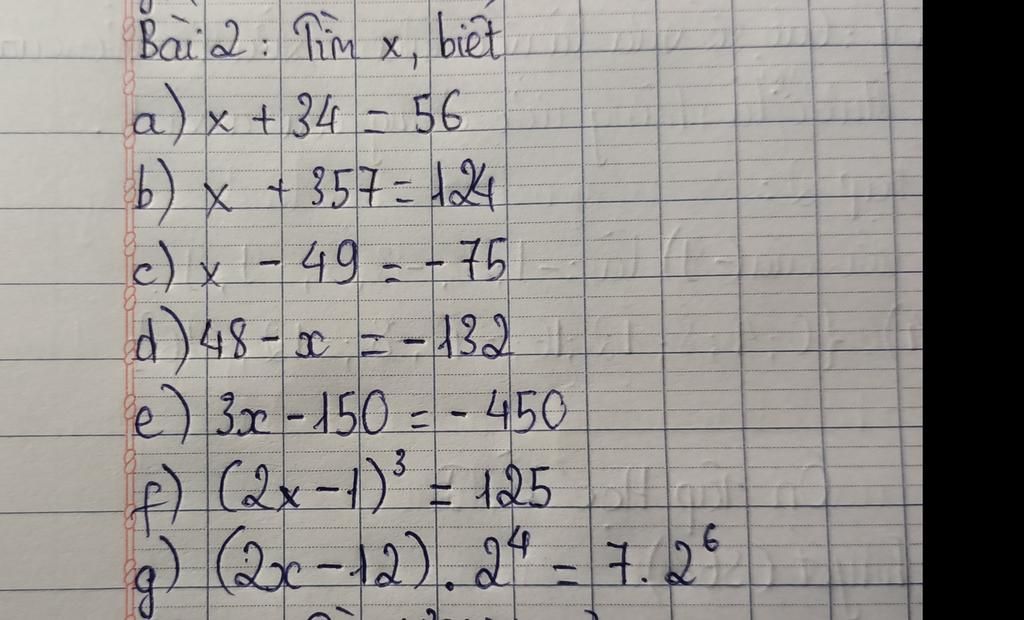 Bài 2: Tìm x, biết
a) x + 34 = 56
b) x + 357 = 124
c) x - 49 = - 75
d) 48 - x = - 132
e) 3x - 150 = - 450
f) (2x - 1)³ = 125
g) (2x - 12) . 2⁴ = 7. 2⁶